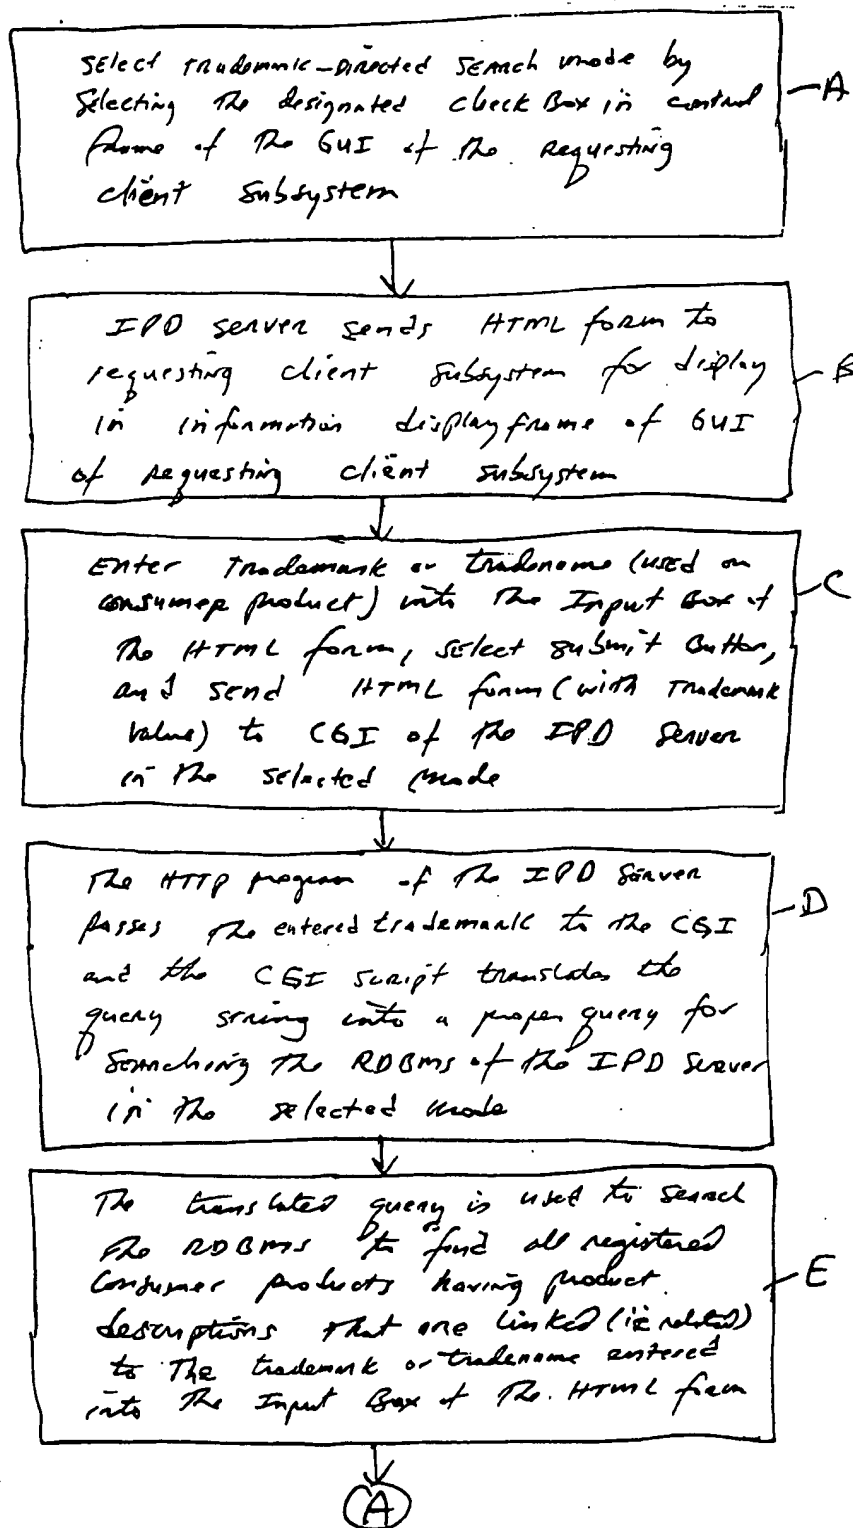 Select Trademark-Directed Search mode by
Selecting the designated check Box in control
frame of the GUI of the requesting
client subsystem
A
IPD server sends HTML form to
requesting client subsystem for display
in information display frame of GUI
of requesting client subsystem
B
Enter Trademark or tradename (used on
consumer product) into the Input Box of
the HTML form, select submit Button,
and send HTML form (with Trademark
value) to CGI of the IPD Server
in the selected mode
C
The HTTP program of the IPD Server
passes the entered trademark to the CGI
and the CGI script translates the
query string into a proper query for
searching the RDBMS of the IPD Server
in the selected mode
D
The translated query is used to search
the RDBMS to find all registered
Consumer products having product
descriptions that are linked (ie related)
to the trademark or tradename entered
into the Input Box of the HTML form
E
A